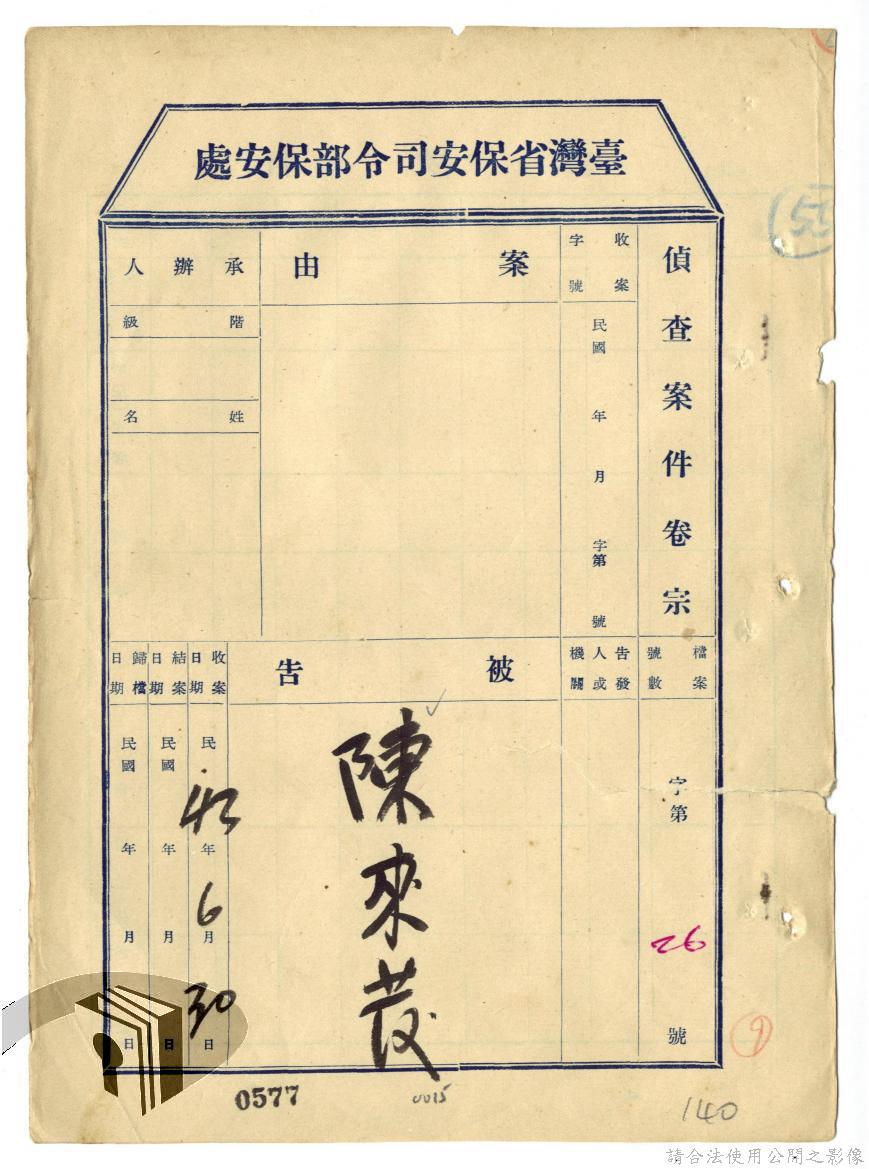 臺灣省保安司令部保安處
偵查案件卷宗
收案字號
民國 年 月 字第 號
案由
承辦人
階級
姓名
檔案號數
字第 26 號
告發人或機關
被告
陳來茂
收案日期
民 42 年 6 月 30 日
結案日期
民國 年 月 日
歸檔日期
民國 年 月 日
0577
0015
140
9
55
請合法使用公開之影像